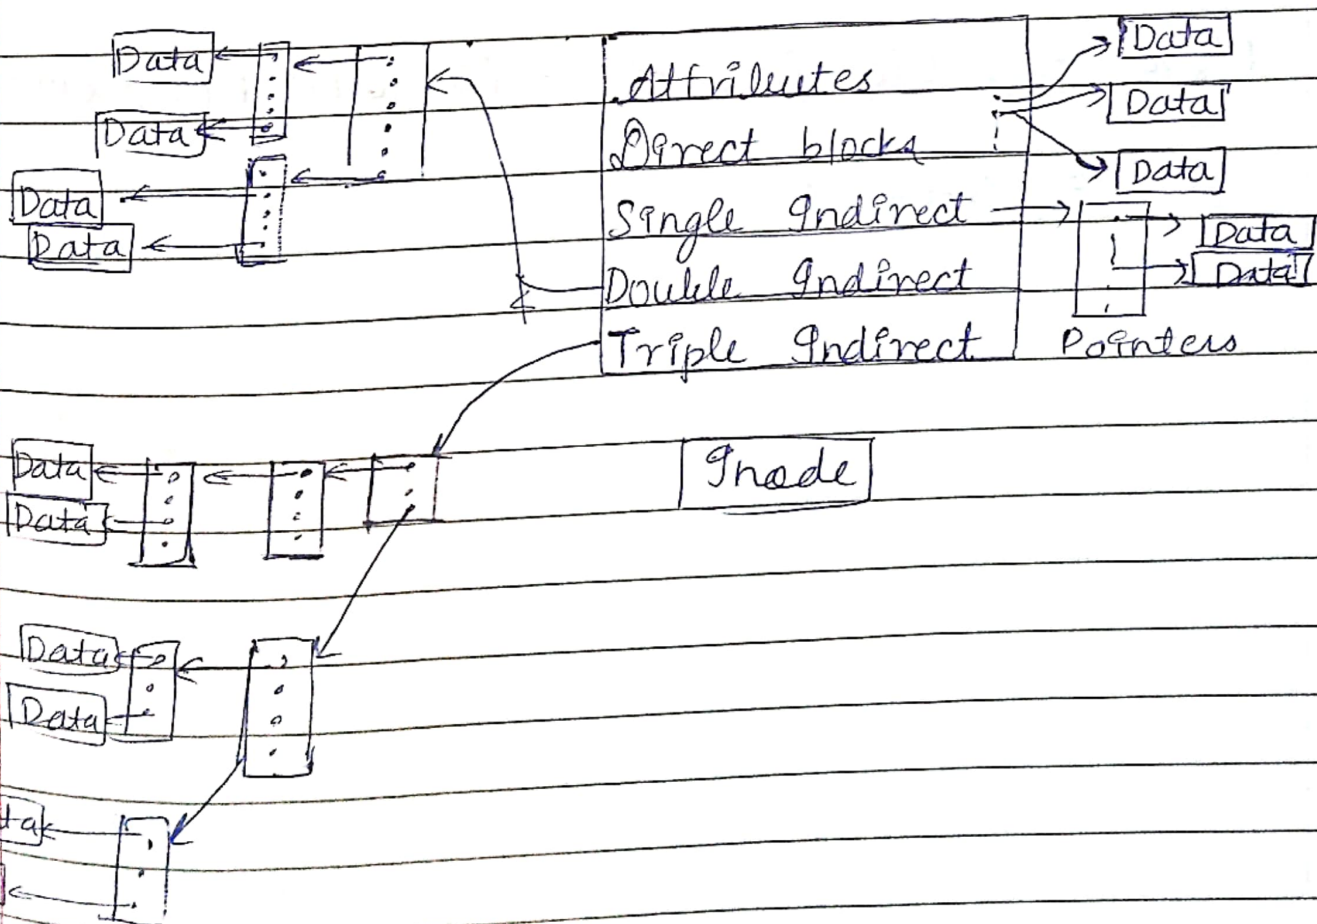 Data
Data
Data
Data
Attributes
Direct blocks
Single Indirect
Double Indirect
Triple Indirect
Data
Data
Data
Data
Data
Pointers
Inode
Data
Data
Data
Data
ta